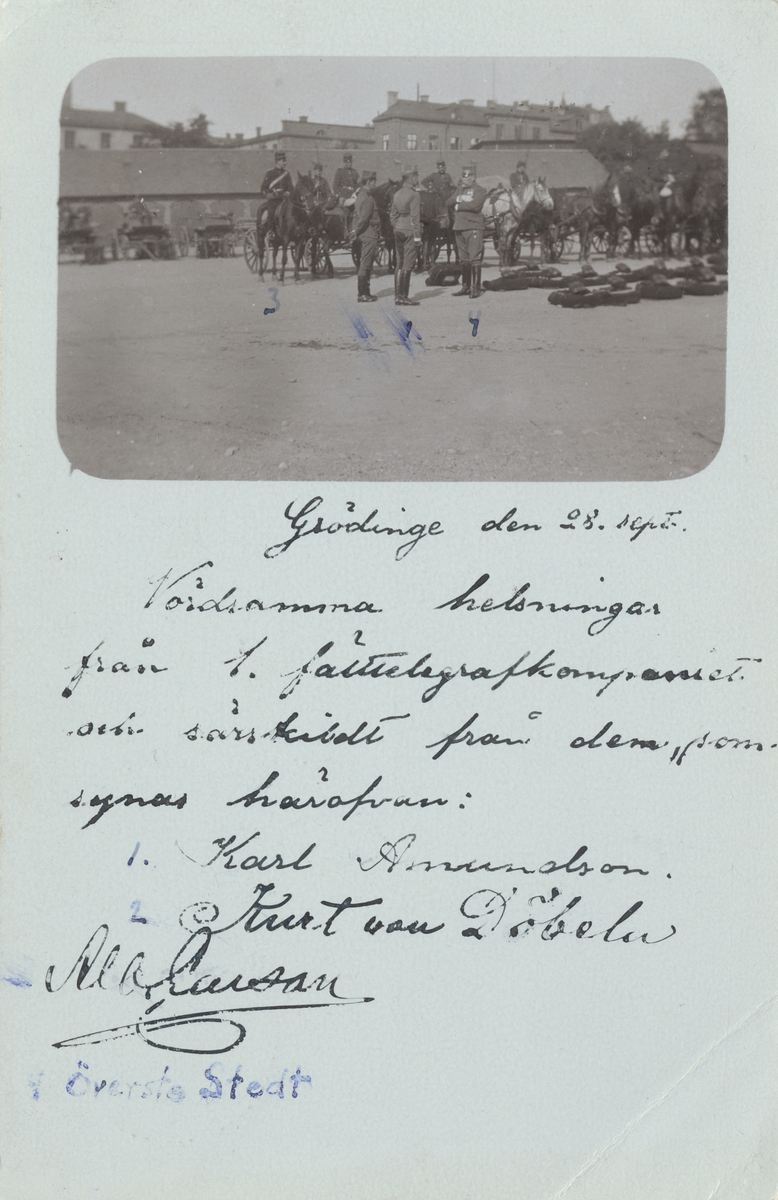 3 1 4
Grödinge den 28. sept.
Vördsamma helsningar
från 1. fälttelegrafkompaniet
och särskildt från dem, som
synas härofvan:
1. Karl Amundson.
2 Kurt von Döbeln
Alb. Larsson
4 Överste Stedt